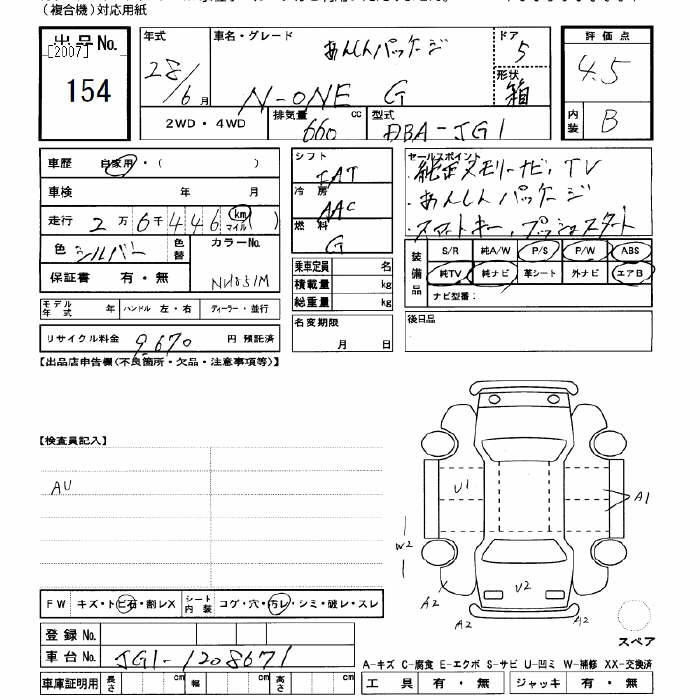 (複合機)対応用紙
出品No.
[2007]
154
年式
28/6月
車名・グレード
あんしんパッケージ
N-ONE G
ドア
5
形状
箱
評価点
4.5
内装
B
2WD・4WD
排気量
660
cc
型式
DBA-JG1
車歴
自家用・( )
車検 年 月
走行 2万6千446(km マイル)
色
シルバー
色替
カラーNo.
NH051M
保証書 有・無
モデル年式 年
ハンドル 左・右
ディーラー・並行
リサイクル料金
9,670
円 預託済
シフト
IAT
冷房
AAC
燃料
G
乗車定員 名
積載量 kg
総重量 kg
名変期限
月 日
セールスポイント
・純正メモリーナビ,TV
・あんしんパッケージ
・スマートキー,プッシュスタート
装備品
S/R 純A/W P/S P/W ABS
純TV 純ナビ 革シート 外ナビ エアB
ナビ型番:
後日品
【出品店申告欄(不良箇所・欠品・注意事項等)】
【検査員記入】
AU
U1
A1
W2
A2
U2
A2
A2
スペア
FW キズ・トビ石・割レX
シート内装
コゲ・穴・汚レ・シミ・破レ・スレ
登録No.
車台No.
JG1-1208671
A-キズ C-腐食 E-エクボ S-サビ U-凹ミ W-補修 XX-交換済
車庫証明用
長さ cm
幅 cm
高さ cm
工具 有・無
ジャッキ 有・無